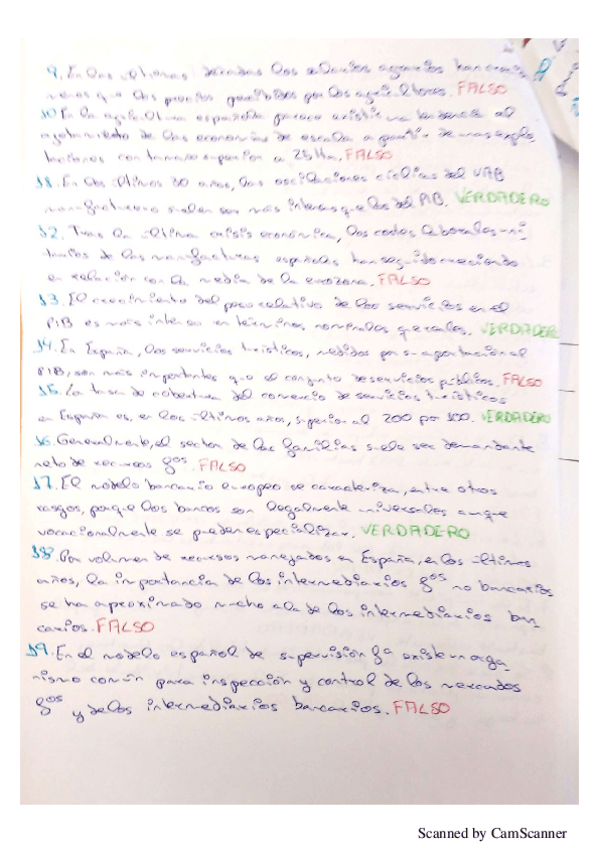 9. En las últimas décadas los salarios agrarios han crecido
menos que los precios percibidos por los agricultores. FALSO
10 En la agricultura española parece existir una tendencia al
agotamiento de las economías de escala a partir de unas explo
taciones con tamaño superior a 25 Ha. FALSO
11. En los últimos 30 años, las oscilaciones cíclicas del VAB
manufacturero suelen ser más intensas que las del PIB. VERDADERO
12. Tras la última crisis económica, los costes laborales uni
tarios de las manufacturas españolas han seguido creciendo
en relación con la media de la eurozona. FALSO
13. El crecimiento del peso relativo de los servicios en el
PIB es más intenso en términos nominales que reales. VERDADERO
14. En España, los servicios turísticos, medidos por su aportación al
PIB, son más importantes que el conjunto de servicios públicos. FALSO
15. La tasa de cobertura del comercio de servicios turísticos
en España es, en los últimos años, superior al 200 por 100. VERDADERO
16. Generalmente, el sector de las familias suele ser demandante
neto de recursos gos. FALSO
17. El modelo bancario europeo se caracteriza, entre otros
rasgos, porque los bancos son legalmente universales aunque
vocacionalmente se pueden especializar. VERDADERO
18. Por volumen de recursos manejados en España, en los últimos
años, la importancia de los intermediarios gos no bancarios
se ha aproximado mucho a la de los intermediarios ban
carios. FALSO
19. En el modelo español de supervisión ga existe un orga
nismo común para inspección y control de los mercados
gos y de los intermediarios bancarios. FALSO
Scanned by CamScanner